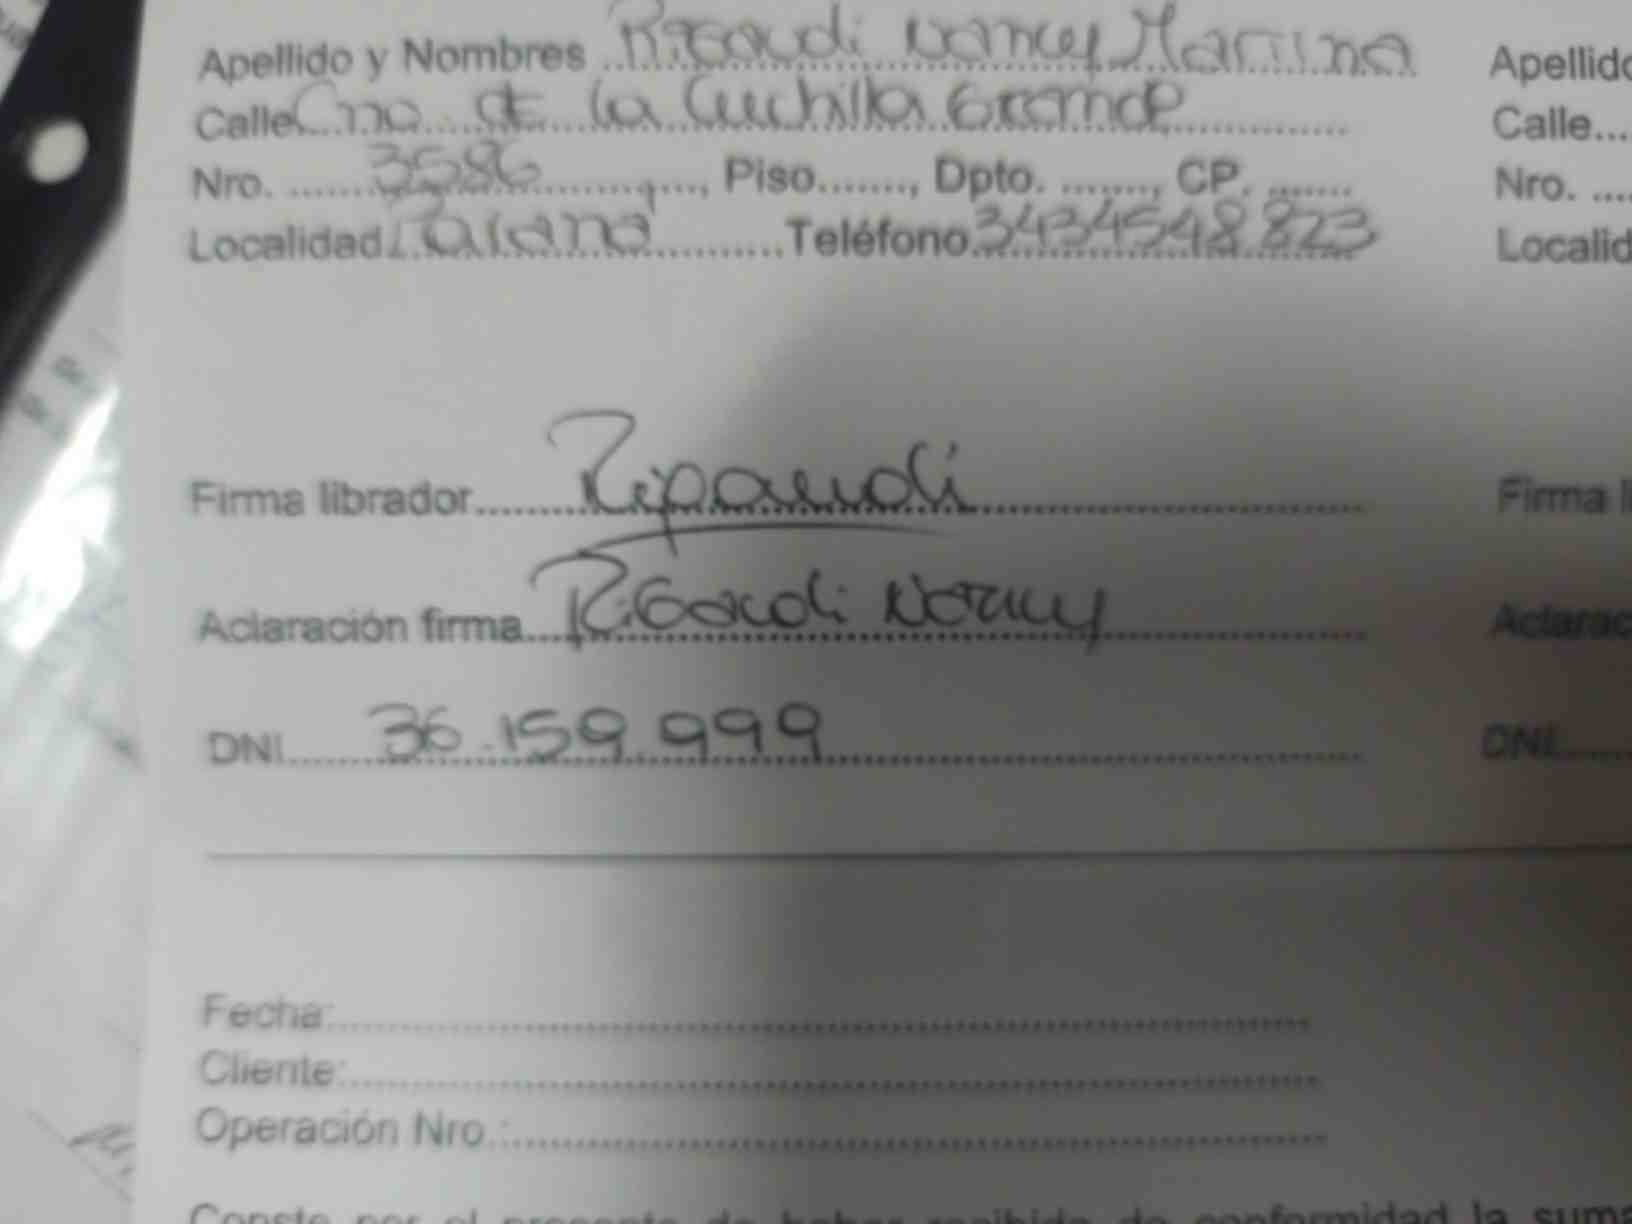 Apellido y Nombres Rigaudi Nancy Martina Apellido
Calle Cno. de la Cuchilla Grande Calle
Nro. 3586, Piso......., Dpto. ......., CP. ....... Nro.
Localidad Parana Teléfono 3434548823 Localid
Firma librador Rigaudi Firma li
Aclaración firma Rigaudi Nancy Aclarac
DNI 36.159.999 DNI
Fecha:
Cliente:
Operación Nro.:
Conste por el presente de haber recibido de conformidad la suma